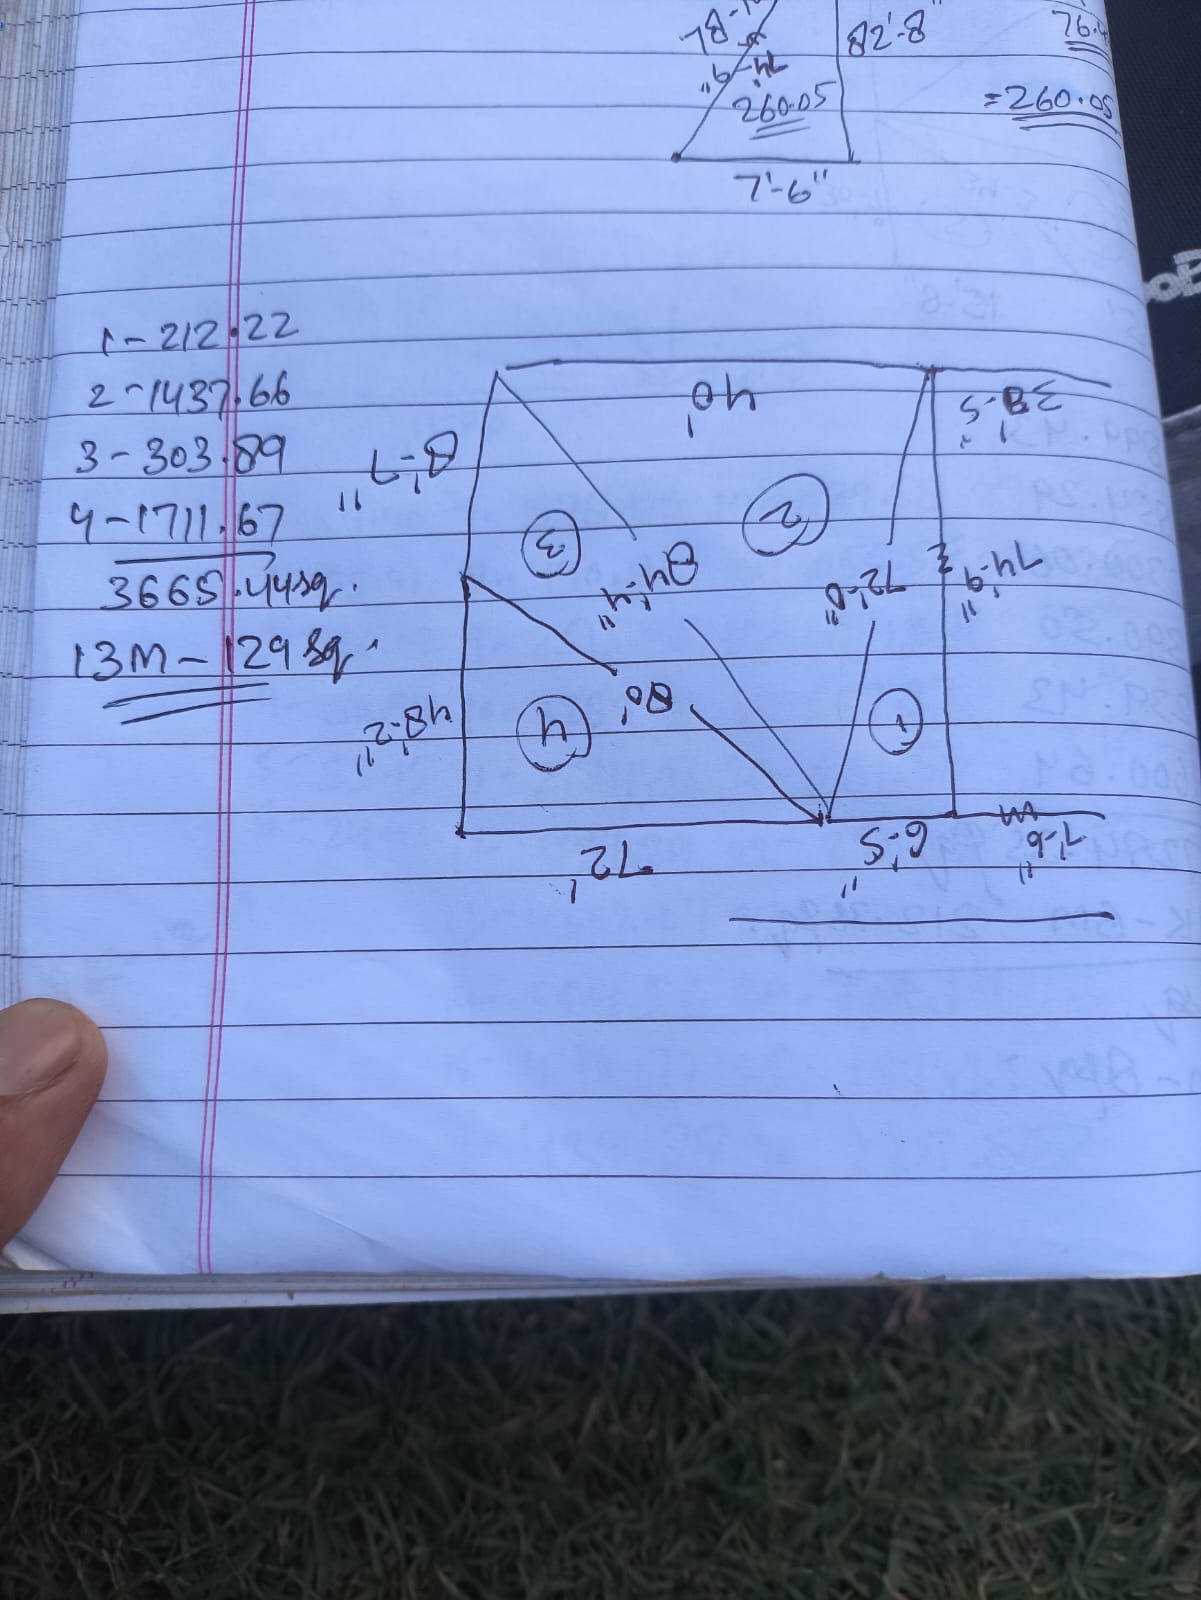 82'-8"
74'-9"
260.05
=260.05
7'-6"
1-212.22
2-1437.66
3-303.89
4-1711.67
3665.44sq.
13M-129 sq.
40'
8'-7"
2
3
84'-4"
72'-0"
74'-9"
80'
48'-2"
4
1
72'
6'-5"
7'-6"